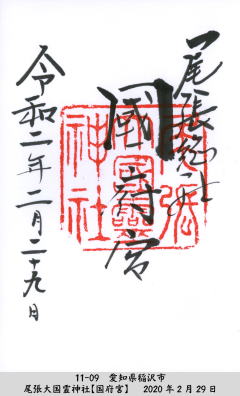 尾張総社
國府宮
令和二年二月二十九日
11-09 愛知県稲沢市
尾張大国霊神社【国府宮】 2020年2月29日